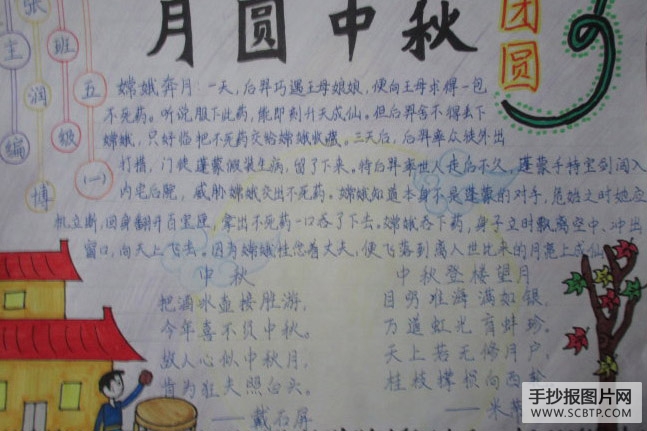 月圆中秋
团圆
张润博
主编
班级
五(一)
嫦娥奔月 一天，后羿巧遇王母娘娘，便向王母求得一包
不死药。听说服下此药，能即刻升天成仙。但后羿舍不得丢下
嫦娥，只好临把不死药交给嫦娥收藏。三天后，后羿率众徒外出
打猎，门徒蓬蒙假装生病，留了下来。待后羿率世人走后不久，蓬蒙手持宝剑闯入
内宅后院，威胁嫦娥交出不死药。嫦娥知道本身不是蓬蒙的对手，危殆之时她应
机立断，回身翻开百宝匣，拿出不死药一口吞了下去。嫦娥吞下药，身子立时飘离空中、冲出
窗口，向天上飞去。因为嫦娥牲念着丈夫，便飞落到离人世比来的月亮上成仙
中秋
把酒冰壶接胜游，
今年喜不负中秋。
故人心似中秋月，
肯为狂夫照白头。
——戴石屏
中秋登楼望月
目穷淮海满如银，
万道虹光育蚌珍。
天上若无修月户，
桂枝撑损向西
——米
手抄报图片网
WWW.SCBTP.COM